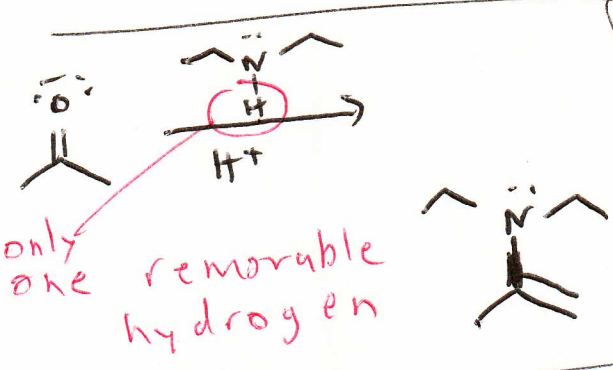 :O:
N
H
H+
only
one removable
hydrogen
N